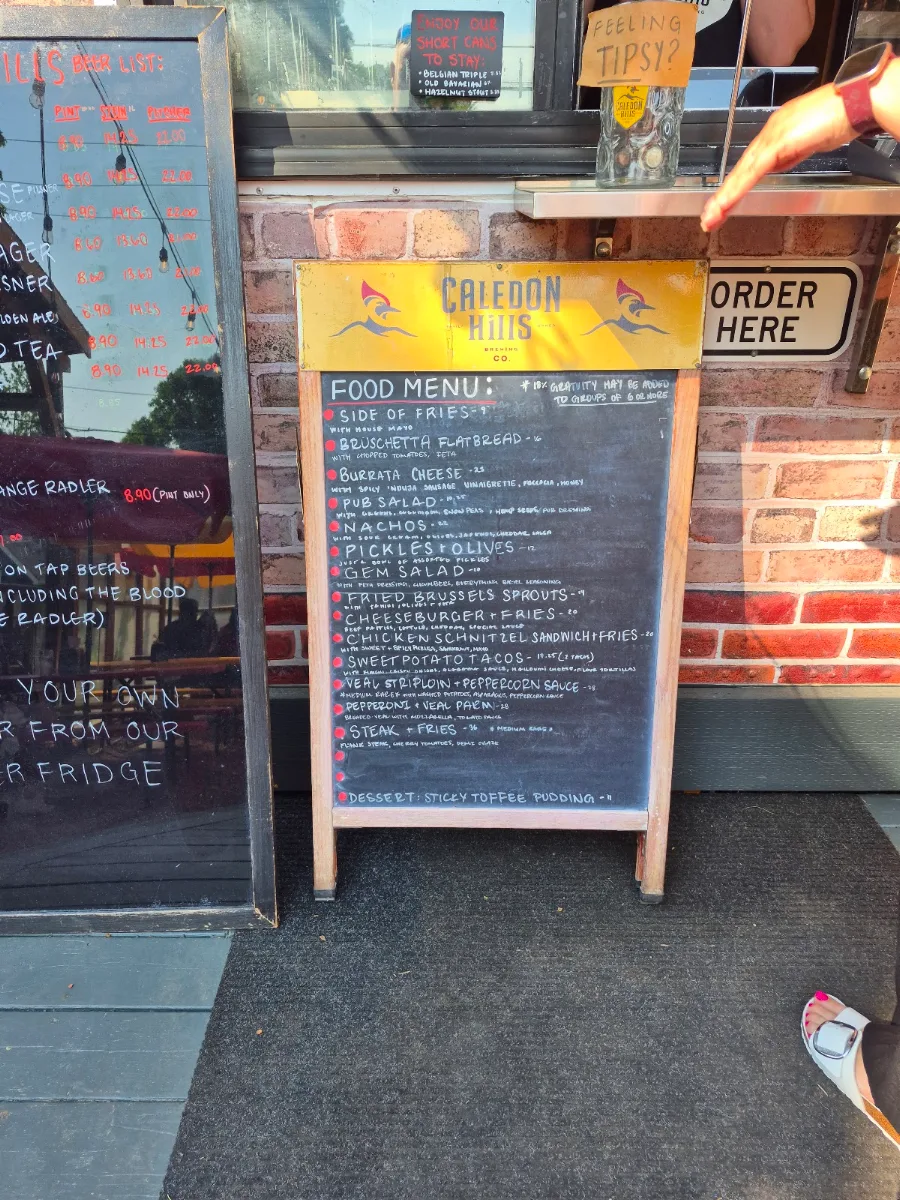 ILLS BEER LIST:
PINT
8.90 14.25 22.00
8.90 14.25 22.00
8.90 14.25 22.00
8.60 13.60 21.00
8.60 13.60 21.00
8.90 14.25 22.00
8.90 14.25 22.00
8.90 14.25 22.00
AGER
SNER
LDEN ALE)
D TEA
ANGE RADLER 8.90 (PINT ONLY)
ON TAP BEERS
NCLUDING THE BLOOD
E RADLER)
YOUR OWN
R FROM OUR
ER FRIDGE
ENJOY OUR
SHORT CANS
TO STAY:
• BELGIAN TRIPLE
• OLD BAVARIAN
• HAZELNUT STOUT
FEELING
TIPSY?
CALEDON
HILLS
CALEDON
HILLS
BREWING
CO.
ORDER
HERE
FOOD MENU:
* 18% GRATUITY MAY BE ADDED
TO GROUPS OF 6 OR MORE
SIDE OF FRIES - 9
WITH HOUSE MAYO
BRUSCHETTA FLATBREAD - 16
WITH CHOPPED TOMATOES, FETA
BURRATA CHEESE - 23
WITH SPICY 'NDUJA SAUSAGE VINAIGRETTE, FOCACCIA, HONEY
PUB SALAD
NACHOS - 22
PICKLES + OLIVES - 12
JUST A BOWL OF ASSORTED PICKLES
GEM SALAD
WITH FETA DRESSING, CUCUMBERS, EVERYTHING BAGEL SEASONING
FRIED BRUSSELS SPROUTS - 9
CHEESEBURGER + FRIES - 20
BEEF PATTIES, LETTUCE, CHEDDAR, SPECIAL SAUCE
CHICKEN SCHNITZEL SANDWICH + FRIES - 20
WITH SWEET + SPICY PICKLES
SWEET POTATO TACOS - 19.25 (2 TACOS)
VEAL STRIPLOIN + PEPPERCORN SAUCE
POTATOES, ASPARAGUS, PEPPERCORN SAUCE
PEPPERONI + VEAL PARM - 28
BREADED VEAL WITH MOZZARELLA, TOMATO SAUCE
STEAK + FRIES - 36 * MEDIUM RARE *
FLANK STEAK, CHERRY TOMATOES, DEMI GLAZE
DESSERT: STICKY TOFFEE PUDDING - 11